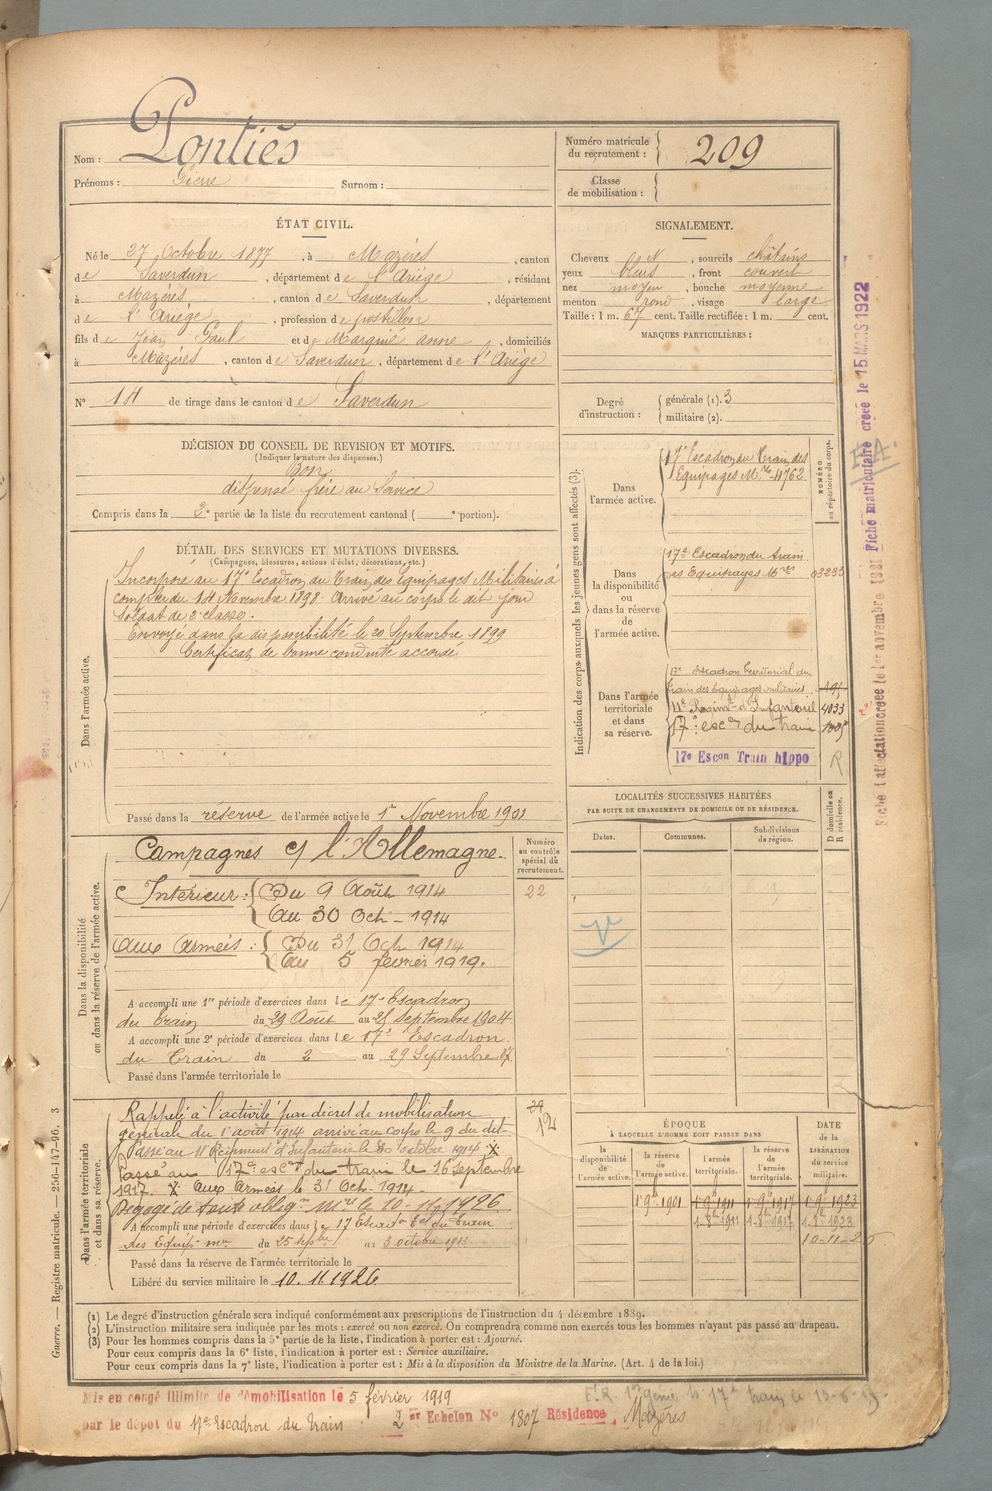 Nom : Pontiès
Prénoms : Pierre Surnom :
Numéro matricule du recrutement : 209
Classe de mobilisation :
ÉTAT CIVIL.
Né le 27 Octobre 1877, à Mazères, canton
de Saverdun, département de l'Ariège, résidant
à Mazères, canton de Saverdun, département
de l'Ariège, profession de postillon
fils de Jean Paul et de Marquié anne, domiciliés
à Mazères, canton de Saverdun, département de l'Ariège
N° de tirage dans le canton de Saverdun
SIGNALEMENT.
Cheveux N, sourcils châtains
yeux bleus, front couvert
nez moyen, bouche moyenne
menton rond, visage large
Taille : 1 m. 67 cent. Taille rectifiée : 1 m. cent.
MARQUES PARTICULIÈRES :
Degré d'instruction : générale (1). 3
militaire (2).
DÉCISION DU CONSEIL DE REVISION ET MOTIFS.
(Indiquer la nature des dispenses.)
Bon
dispensé frère au Service
Compris dans la 2e partie de la liste du recrutement cantonal ( e portion).
DÉTAIL DES SERVICES ET MUTATIONS DIVERSES.
(Campagnes, blessures, actions d'éclat, décorations, etc.)
Dans l'armée active.
Incorporé au 17e Escadron du Train des Équipages Militaires à
compter du 14 Novembre 1898. Arrivé au corps le dit jour
soldat de 2e classe.
Envoyé dans la disponibilité le 20 Septembre 1899
Certificat de bonne conduite accordé
Passé dans la réserve de l'armée active le 1er Novembre 1901
Indication des corps auxquels les jeunes gens sont affectés (3).
NUMÉRO au répertoire du corps.
Dans l'armée active.
17e Escadron du Train des
Equipages Mres 4762
Dans la disponibilité ou dans la réserve de l'armée active.
17e Escadron du train
des Equipages Mres 03233
Dans l'armée territoriale et dans sa réserve.
17e Escadron territorial du
train des équipages militaires
11e Regimt d'Infanterie 4033
17e escon du train
17e Escon Train hippo R
LOCALITÉS SUCCESSIVES HABITÉES
PAR SUITE DE CHANGEMENTS DE DOMICILE OU DE RÉSIDENCE.
Dates. Communes. Subdivisions de région. D domicile ou R résidence.
Numéro au contrôle spécial du recrutement.
22
Dans la disponibilité ou dans la réserve de l'armée active.
Campagnes c/ l'Allemagne.
Intérieur : Du 9 Août 1914
Au 30 Oct - 1914
Aux Armées : Du 31 Oct 1914
Au 5 fevrier 1919.
A accompli une 1re période d'exercices dans le 17e Escadron
du Train du 29 Août au 25 Septembre 1904
A accompli une 2e période d'exercices dans le 17e Escadron
du Train du 2 au 29 Septembre 07
Passé dans l'armée territoriale le
Dans l'armée territoriale et dans sa réserve.
Rappelé à l'activité par décret de mobilisation
générale du 1er août 1914 arrivé au corps le 9 du dit
Passé au 11e Régiment d'Infanterie le 30 octobre 1914 X
Passé au 17e escon du train le 16 Septembre
1917. X Aux Armées le 31 Oct. 1914
Dégagé de toute obligon Mre le 10-11-1926.
A accompli une période d'exercices dans le 17 Escadon Eal du Train
des Equip. mres du 25 septbre au 3 octobre 1913
Passé dans la réserve de l'armée territoriale le
Libéré du service militaire le 10.11.1926
12
ÉPOQUE
À LAQUELLE L'HOMME DOIT PASSER DANS
la disponibilité de l'armée active.
la réserve de l'armée active.
l'armée territoriale.
la réserve de l'armée territoriale.
DATE de la LIBÉRATION du service militaire.
1 9bre 1901 1 9bre 1911 1 9bre 1917 1 9bre 1923
1-8bre 1911 1-8bre 1917 1-8bre 1923
(1) Le degré d'instruction générale sera indiqué conformément aux prescriptions de l'instruction du 4 décembre 1889.
(2) L'instruction militaire sera indiquée par les mots : exercé ou non exercé. On comprendra comme non exercés tous les hommes n'ayant pas passé au drapeau.
(3) Pour les hommes compris dans la 5e partie de la liste, l'indication à porter est : Ajourné.
Pour ceux compris dans la 6e liste, l'indication à porter est : Service auxiliaire.
Pour ceux compris dans la 7e liste, l'indication à porter est : Mis à la disposition du Ministre de la Marine. (Art. 4 de la loi.)
Mis en congé illimité de démobilisation le 5 février 1919
par le dépôt du 17e Escadron du Train 2 er Echelon N° 1807 Résidence Mazères
Guerre. — Registre matricule. — 256-147-96. 3
Fiche matriculaire créée le 15 MARS 1922
Fiche d'affectation créée le 1er novembre